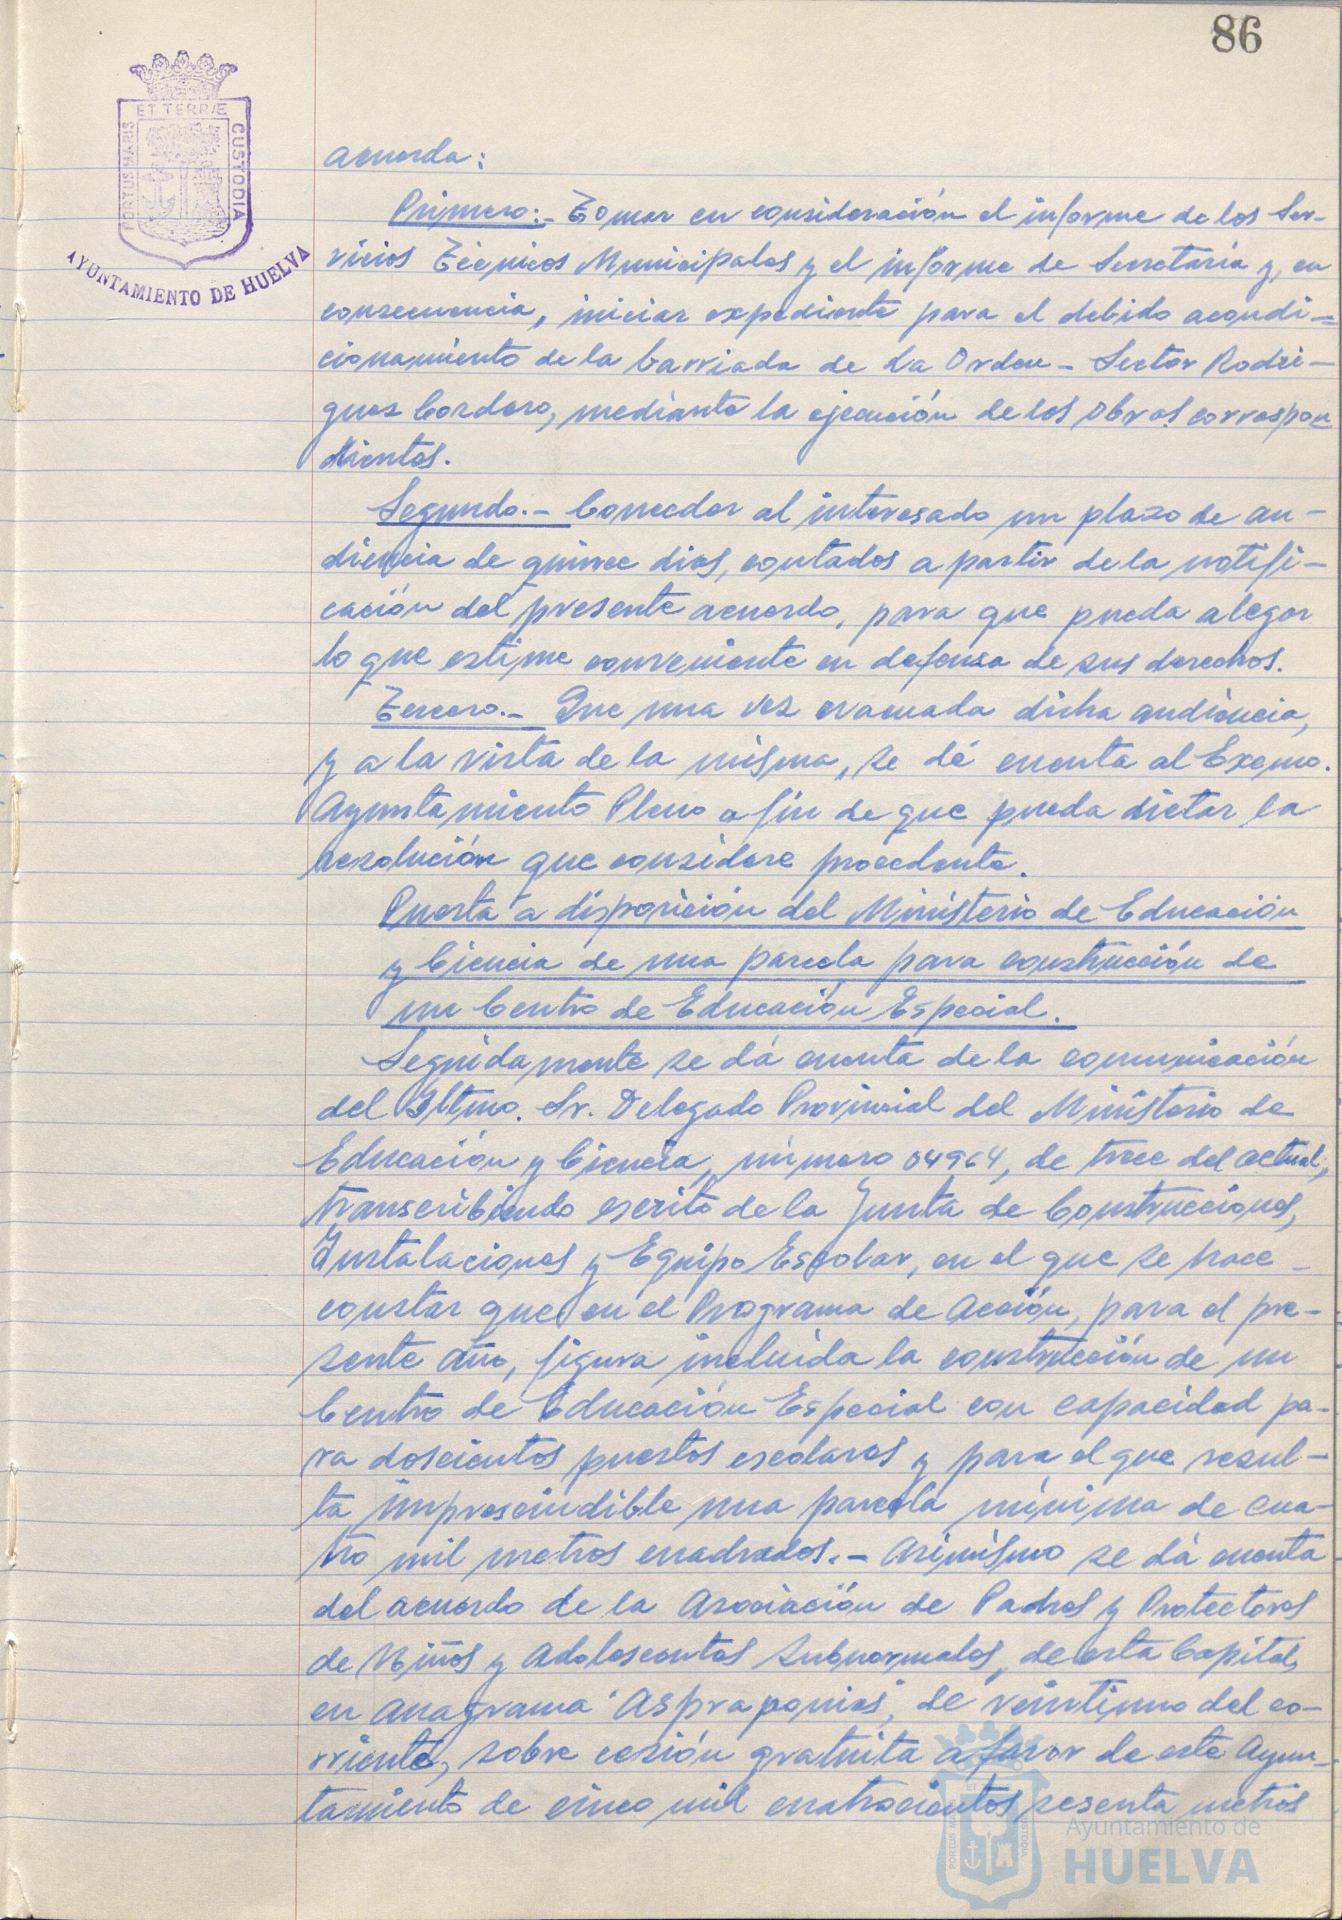 86
ET TERRÆ
PORTUS MARIS
CUSTODIA
AYUNTAMIENTO DE HUELVA
acuerda:
Primero:- Tomar en consideración el informe de los Ser-
vicios Técnicos Municipales y el informe de Secretaría y, en
consecuencia, iniciar expediente para el debido acondi-
cionamiento de la barriada de La Orden - Sector Rodrí-
guez Cordero, mediante la ejecución de las obras correspon
dientes.
Segundo.- Conceder al interesado un plazo de au-
diencia de quince dias, contados a partir de la notifi-
cación del presente acuerdo, para que pueda alegar
lo que estime conveniente en defensa de sus derechos.
Tercero.- Que una vez evacuada dicha audiencia,
y a la vista de la misma, se dé cuenta al Excmo.
Ayuntamiento Pleno a fin de que pueda dictar la
resolución que considere procedente.
Puesta a disposición del Ministerio de Educación
y Ciencia de una parcela para construcción de
un Centro de Educación Especial.
Seguidamente se dá cuenta de la comunicación
del Iltmo. Sr. Delegado Provincial del Ministerio de
Educación y Ciencia, número 04964, de trece del actual,
transcribiendo escrito de la Junta de Construcciones,
Instalaciones y Equipo Escolar, en el que se hace
constar que en el Programa de Acción, para el pre-
sente año, figura incluida la construcción de un
Centro de Educación Especial con capacidad pa-
ra doscientos puestos escolares y para el que resul-
ta imprescindible una parcela mínima de cua-
tro mil metros cuadrados.- Asimismo se dá cuenta
del acuerdo de la Asociación de Padres y Protectores
de Niños y Adolescentes Subnormales, de esta Capital,
en anagrama "Aspraponias", de veintiuno del co-
rriente, sobre cesión gratuita a favor de este Ayun-
tamiento de cinco mil cuatrocientos sesenta metros
Ayuntamiento de
HUELVA